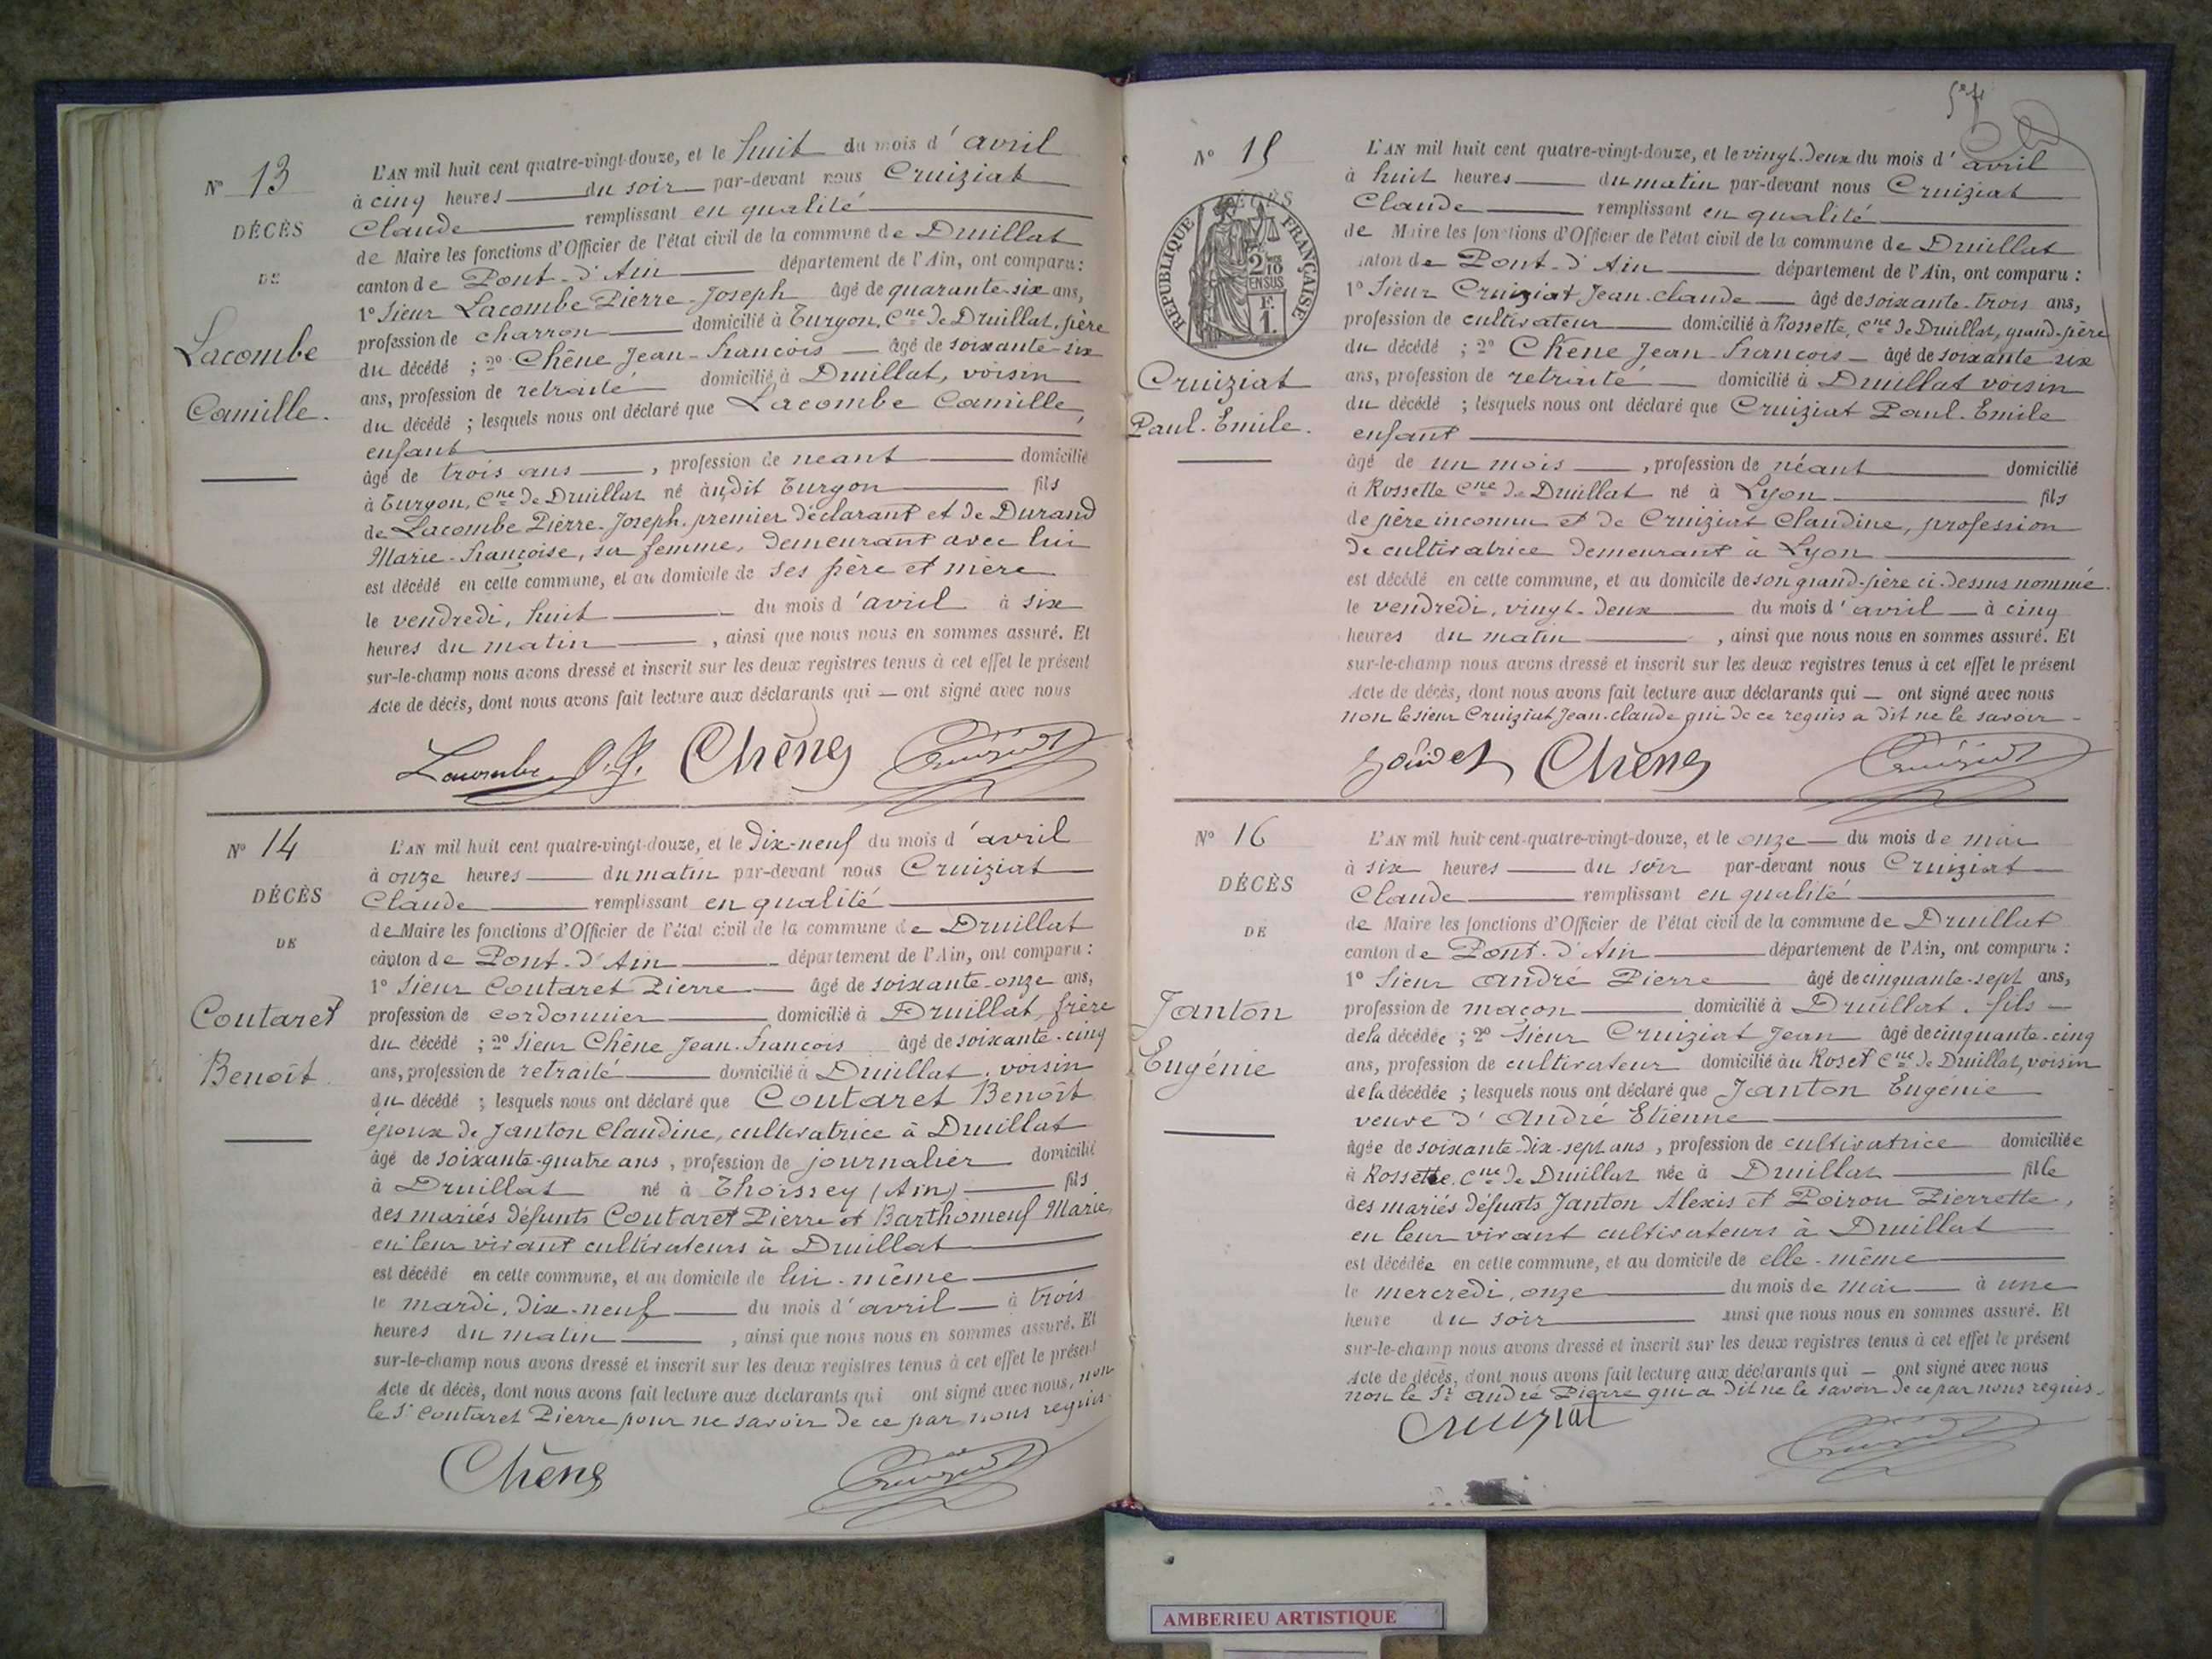 N° 13
DÉCÈS
DE
Lacombe
Camille.
L'AN mil huit cent quatre-vingt-douze, et le huit du mois d'avril
à cinq heures du soir par-devant nous Cruiziat
Claude remplissant en qualité
de Maire les fonctions d'Officier de l'état civil de la commune de Druillat
canton de Pont-d'Ain département de l'Ain, ont comparu :
1° Sieur Lacombe Pierre-Joseph âgé de quarante-six ans,
profession de charron domicilié à Turgon, Cne de Druillat, père
du décédé ; 2° Chêne Jean-François âgé de soixante-six
ans, profession de retraité domicilié à Druillat, voisin
du décédé ; lesquels nous ont déclaré que Lacombe Camille,
enfant
âgé de trois ans, profession de néant domicilié
à Turgon, Cne de Druillat né àudit Turgon fils
de Lacombe Pierre-Joseph, premier déclarant et de Durand
Marie-Françoise, sa femme, demeurant avec lui
est décédé en cette commune, et au domicile de ses père et mère
le vendredi, huit du mois d'avril à six
heures du matin, ainsi que nous nous en sommes assuré. Et
sur-le-champ nous avons dressé et inscrit sur les deux registres tenus à cet effet le présent
Acte de décès, dont nous avons fait lecture aux déclarants qui — ont signé avec nous
Lacombe P.J. Chêne Cruiziat
N° 14
DÉCÈS
DE
Coutaret
Benoît
L'AN mil huit cent quatre-vingt-douze, et le dix-neuf du mois d'avril
à onze heures du matin par-devant nous Cruiziat
Claude remplissant en qualité
de Maire les fonctions d'Officier de l'état civil de la commune de Druillat
canton de Pont-d'Ain département de l'Ain, ont comparu :
1° Sieur Coutaret Pierre âgé de soixante-onze ans,
profession de cordonnier domicilié à Druillat, frère
du décédé ; 2° Sieur Chêne Jean-François âgé de soixante-cinq
ans, profession de retraité domicilié à Druillat, voisin
du décédé ; lesquels nous ont déclaré que Coutaret Benoît
époux de Janton Claudine, cultivatrice à Druillat
âgé de soixante-quatre ans, profession de journalier domicilié
à Druillat né à Thoissey (Ain) fils
des mariés défunts Coutaret Pierre et Barthomeuf Marie,
en leur vivant cultivateurs à Druillat
est décédé en cette commune, et au domicile de lui-même
le mardi, dix-neuf du mois d'avril à trois
heures du matin, ainsi que nous nous en sommes assuré. Et
sur-le-champ nous avons dressé et inscrit sur les deux registres tenus à cet effet le présent
Acte de décès, dont nous avons fait lecture aux déclarants qui ont signé avec nous, non
le Sr Coutaret Pierre pour ne savoir de ce par nous requis.
Chêne Cruiziat
N° 15
DÉCÈS
RÉPUBLIQUE FRANÇAISE
2/10 EN SUS
F. 1.
Cruiziat
Paul-Emile.
L'AN mil huit cent quatre-vingt-douze, et le vingt-deux du mois d'avril
à huit heures du matin par-devant nous Cruiziat
Claude remplissant en qualité
de Maire les fonctions d'Officier de l'état civil de la commune de Druillat
canton de Pont-d'Ain département de l'Ain, ont comparu :
1° Sieur Cruiziat Jean-Claude âgé de soixante-trois ans,
profession de cultivateur domicilié à Rossette, Cne de Druillat, grand-père
du décédé ; 2° Chêne Jean-François âgé de soixante-six
ans, profession de retraité domicilié à Druillat voisin
du décédé ; lesquels nous ont déclaré que Cruiziat Paul-Emile
enfant
âgé de un mois, profession de néant domicilié
à Rossette Cne de Druillat né à Lyon fils
de père inconnu et de Cruiziat Claudine, profession
de cultivatrice demeurant à Lyon
est décédé en cette commune, et au domicile de son grand-père ci-dessus nommé.
le vendredi, vingt-deux du mois d'avril à cinq
heures du matin, ainsi que nous nous en sommes assuré. Et
sur-le-champ nous avons dressé et inscrit sur les deux registres tenus à cet effet le présent
Acte de décès, dont nous avons fait lecture aux déclarants qui — ont signé avec nous
non le sieur Cruiziat Jean-Claude qui de ce requis a dit ne le savoir
Chêne Cruiziat
N° 16
DÉCÈS
DE
Janton
Eugénie
L'AN mil huit cent quatre-vingt-douze, et le onze du mois de mai
à six heures du soir par-devant nous Cruiziat
Claude remplissant en qualité
de Maire les fonctions d'Officier de l'état civil de la commune de Druillat
canton de Pont-d'Ain département de l'Ain, ont comparu :
1° Sieur André Pierre âgé de cinquante-sept ans,
profession de maçon domicilié à Druillat, fils
de la décédée ; 2° Sieur Cruiziat Jean âgé de cinquante-cinq
ans, profession de cultivateur domicilié àu Roset Cne de Druillat, voisin
de la décédée ; lesquels nous ont déclaré que Janton Eugénie
veuve d'André Etienne
âgée de soixante-dix-sept ans, profession de cultivatrice domiciliée
à Rossette, Cne de Druillat née à Druillat fille
des mariés défunts Janton Alexis et Poiron Pierrette,
en leur vivant cultivateurs à Druillat
est décédée en cette commune, et au domicile de elle-même
le mercredi, onze du mois de mai à une
heure du soir ainsi que nous nous en sommes assuré. Et
sur-le-champ nous avons dressé et inscrit sur les deux registres tenus à cet effet le présent
Acte de décès, dont nous avons fait lecture aux déclarants qui — ont signé avec nous
non le Sr André Pierre qui a dit ne le savoir de ce par nous requis.
Cruiziat Cruiziat
AMBERIEU ARTISTIQUE